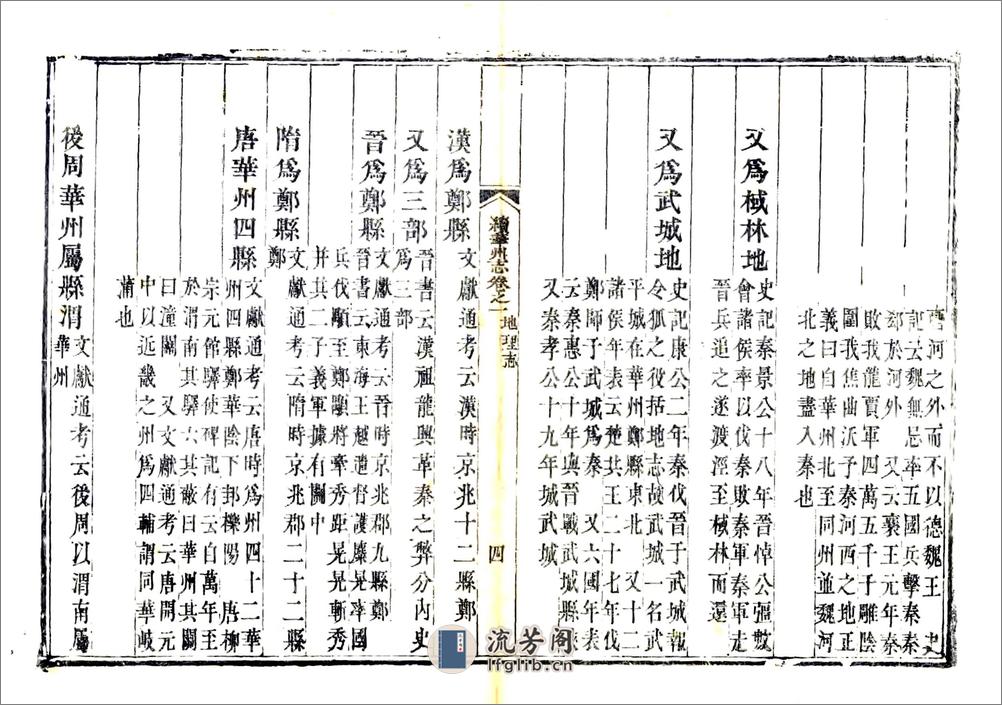 齊河之外而不以德魏王　史
記云魏無忌率五國兵擊秦秦
郤於河外　又云襄王元年秦
敗我龍賈軍四萬五千于雕陰
圍我焦曲沃予秦河西之地正
義曰自華州北至同州並魏河
北之地盡入秦也
又爲棫林地
史記秦景公十八年晉悼公彊數
會諸侯率以伐秦敗秦軍秦軍走
晉兵追之遂渡涇至棫林而還
又爲武城地
史記康公二年秦伐晉于武城報
令狐之役括地志故武城一名武
平城在華州鄭縣東北　又十二
諸侯年表云楚共王二十七年伐
鄭師于武城爲秦　又六國年表
云秦惠公十年與晉戰武城縣陝
又秦孝公十九年城武城
續華州志卷之一　地理志　四
漢爲鄭縣
文獻通考云漢時京兆十二縣鄭
又爲三部
晉書云漢祖龍興革秦之弊分內史
爲三部
晉爲鄭縣
文獻通考云晉時京兆郡九縣鄭
晉書云東海王越遣督護麋晃率國
兵伐顒至鄭顒將牽秀距晃晃斬秀
并其二子義軍據有關中
隋爲鄭縣
文獻通考云隋時京兆郡二十二縣
鄭
唐華州四縣
文獻通考云唐時爲州四十二華
州四縣鄭華陰下邽櫟陽　唐柳
宗元館驛使碑記有云自萬年至
於渭南其驛六其蔽曰華州其關
曰潼關　又文獻通考云唐開元
中以近畿之州爲四輔謂同華岐
蒲也
後周華州屬縣渭
文獻通考云後周以渭南屬
華州
流芳阁
lfglib.cn